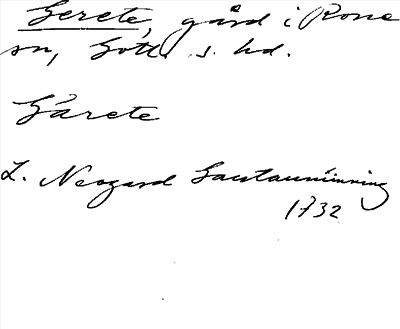 Gerete, gård i Rone
sn, Gotl. s. hd.
Gårete
L. Neogard Gautauminning
1732